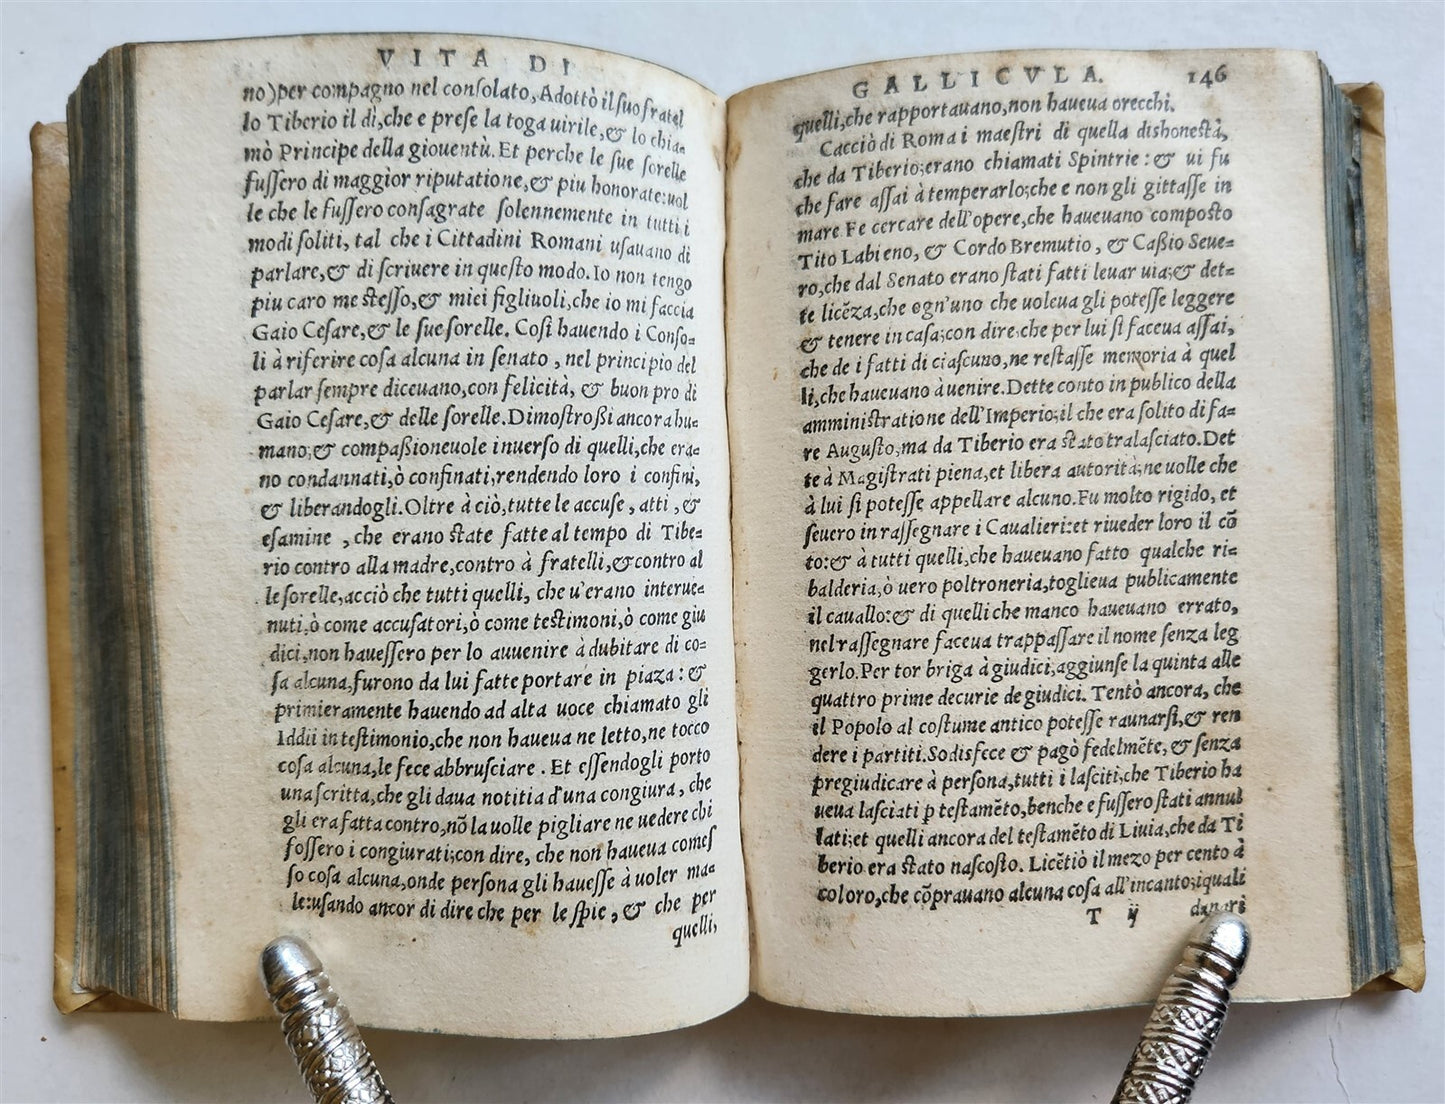 VITA DI
no)per compagno nel conſolato, Adottò il ſuo fratel
lo Tiberio il dì,che e preſe la toga uirile,& lo chia⸗
mò Principe della giouentù. Et perche le ſue ſorelle
fuſſero di maggior riputatione,& piu honorate:uol
le che le fuſſero conſagrate ſolennemente in tutti i
modi ſoliti, tal che i Cittadini Romani uſauano di
parlare,& di ſcriuere in queſto modo. Io non tengo
piu caro me ſteſſo,& miei figliuoli,che io mi faccia
Gaio Ceſare,& le ſue ſorelle. Coſi hauendo i Conſo⸗
li à riferire coſa alcuna in ſenato , nel principio del
parlar ſempre diceuano,con felicità, & buon pro di
Gaio Ceſare,& delle ſorelle. Dimoſtroßi ancora hu⸗
mano,& compaßioneuole inuerſo di quelli,che era⸗
no condannati,ò confinati,rendendo loro i confini,
& liberandogli. Oltre à ciò,tutte le accuſe , atti , &
eſamine , che erano ſtate fatte al tempo di Tibe⸗
rio contro alla madre,contro à fratelli,& contro al
le ſorelle,acciò che tutti quelli, che u'erano interue⸗
nuti,ò come accuſatori,ò come teſtimoni,ò come giu
dici,non haueſſero per lo auuenire à dubitare di co⸗
ſa alcuna,furono da lui fatte portare in piaza : &
primieramente hauendo ad alta uoce chiamato gli
Iddii in teſtimonio,che non haueua ne letto,ne tocco
coſa alcuna,le fece abbruſciare . Et eſſendogli porto
una ſcritta,che gli daua notitia d'una congiura, che
gli era fatta contro,nõ la uolle pigliare ne uedere chi
foſſero i congiurati;con dire, che non haueua comeſ
ſo coſa alcuna,onde perſona gli haueſſe à uoler ma⸗
le:uſando ancor di dire che per le ſpie , & che per
quelli,
GALLICVLA. 146
quelli,che rapportauano,non haueua orecchi.
Cacciò di Roma i maeſtri di quella dishoneſtà,
che da Tiberio;erano chiamati Spintrie : & ui fu
che fare aſſai à temperarlo;che e non gli gittaſſe in
mare Fe cercare dell'opere,che haueuano compoſto
Tito Labieno, & Cordo Bremutio , & Caßio Seue⸗
ro,che dal Senato erano ſtati fatti leuar uia;& det⸗
te licẽza,che ogn'uno che uoleua gli poteſſe leggere
& tenere in caſa;con dire,che per lui ſi faceua aſſai,
che de i fatti di ciaſcuno,ne reſtaſſe memoria à quel
li,che haueuano à uenire. Dette conto in publico della
amminiſtratione dell'Imperio;il che era ſolito di fa⸗
re Auguſto,ma da Tiberio era ſtato tralaſciato. Det
te à Magiſtrati piena,et libera autorità;ne uolle che
à lui ſi poteſſe appellare alcuno. Fu molto rigido, et
ſeuero in raſſegnare i Caualieri:et riueder loro il cõ
to:& à tutti quelli,che haueuano fatto qualche ri⸗
balderia,ò uero poltroneria,toglieua publicamente
il cauallo:& di quelli che manco haueuano errato,
nel raſſegnare faceua trappaſſare il nome ſenza leg
gerlo. Per tor briga à giudici,aggiunſe la quinta alle
quattro prime decurie de giudici. Tentò ancora, che
il Popolo al coſtume antico poteſſe raunarſi,& ren
dere i partiti. Sodisfece & pagò fedelmẽte,& ſenza
pregiudicare à perſona,tutti i laſciti,che Tiberio ha
ueua laſciati p teſtamẽto,benche e fuſſero ſtati annul
lati;et quelli ancora del teſtamẽto di Liuia,che da Ti
berio era ſtato naſcoſto. Licẽtiò il mezo per cento à
coloro,che cõprauano alcuna coſa all'incanto;iquali
T ij danari